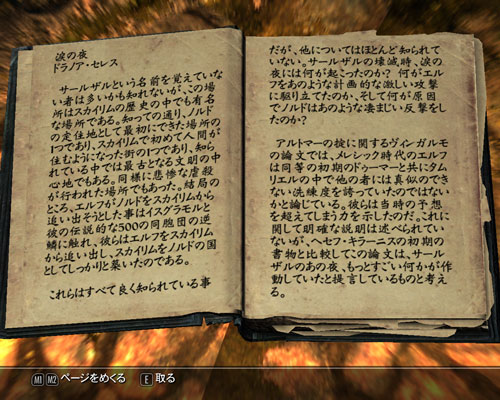 涙の夜
ドラノア・セレス
サールザルという名前を覚えていな
い者は多いかも知れないが、この場
所はスカイリムの歴史の中でも有名
な場所である。知っての通り、ノルド
の定住地として最初にできた場所の
1つであり、スカイリムで初めて人間が
住むようになった街の1つであり、知ら
れている中では最古となる文明の中
心地でもある。同様に悲惨な虐殺
が行われた場所でもあった。結局の
ところ、エルフがノルドをスカイリムから
追い出そうとした事はイスグラモルと
彼の伝説的な500の同胞団の逆
鱗に触れ、彼らはエルフをスカイリム
から追い出し、スカイリムをノルドの国
としてしっかりと築いたのである。
これらはすべて良く知られている事
だが、他についてはほとんど知られて
いない。サールザルの壊滅時、涙の
夜には何が起こったのか? 何がエル
フをあのような計画的な激しい攻撃
に駆り立てたのか、そして何が原因
でノルドはあのような凄まじい反撃をし
たのか?
アルトマーの掟に関するヴィンガルモ
の論文では、メレシック時代のエルフ
は同等の初期のドゥーマーと共にタム
リエルの中で他の者には真似のでき
ない洗練度を誇っていたのではない
かと論じている。彼らは当時の予想
を超えてしまう力を示したのだ。これに
関して明確な説明は述べられてい
ないが、ヘセフ・キラーニスの初期の
書物と比較してこの論文は、サール
ザルのあの夜、もっとすごい何かが作
動していたと提言しているものと考え
る。
M1 M2 ページをめくる E 取る